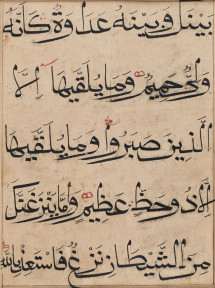 بينك وبينه عداوة كأنه
ولي حميم وما يلقيها الا
الذين صبروا وما يلقيها
الا ذو حظ عظيم واما ينزغنك
من الشيطان نزغ فاستعذ بالله